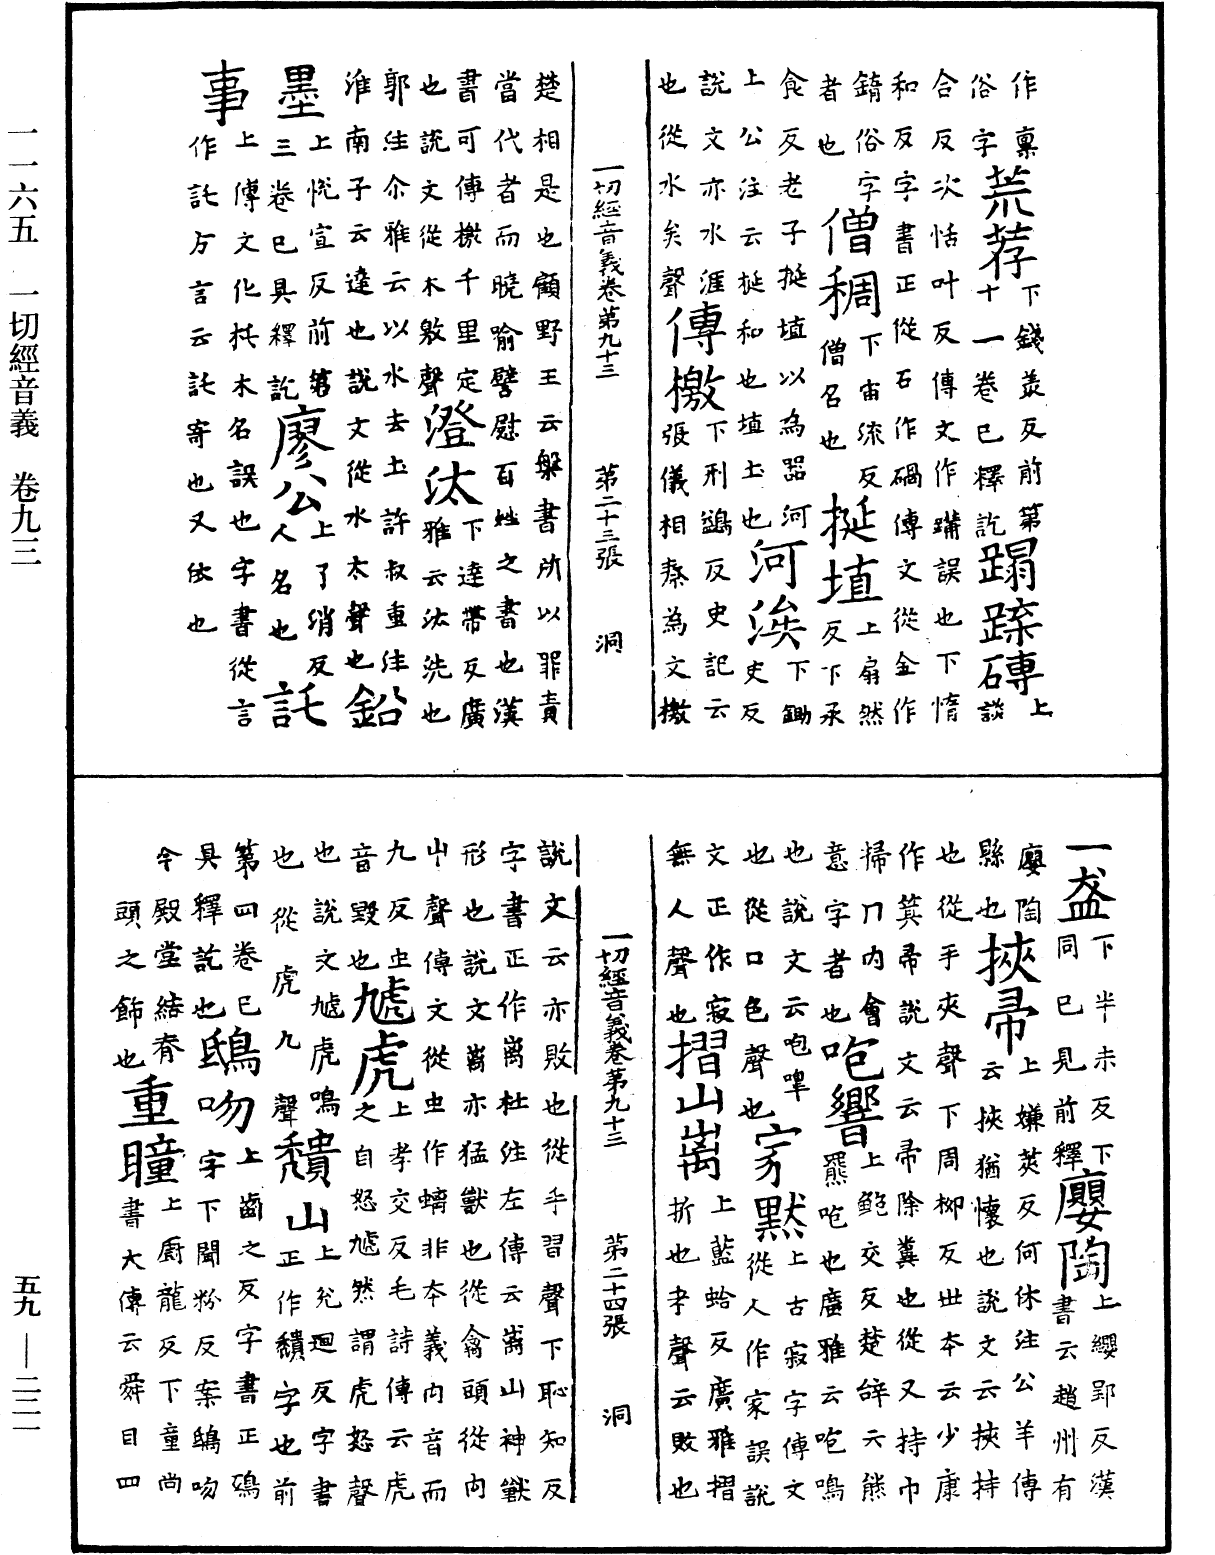 作稟俗字荒荐下錢羨反前第十一卷已釋訖蹋蹂磚上談
合反次恬叶反傳文作蹣誤也下惰和反字書正從石作碢傳文從金作
鎆俗字者也僧稠下宙流反僧名也挻埴上扇然反下承
食反老子挻埴以為器河上公注云挻和也埴土也河涘下鋤史反
說文亦水涯也從水矣聲傳檄下刑鷁反史記云張儀相秦為文檄
一切經音義卷第九十三　第二十三張　洞
楚相是也顧野王云檄書所以罪責當代者而曉喻譬慰百姓之書也漢
書可傳檄千里定也說文從木敫聲澄汰下達帶反廣雅云汰洗也
郭注尒雅云以水去土許叔重注淮南子云達也說文從水太聲也鉛
墨上悅宣反前第三卷已具釋訖廖公上了消反人名也託
事上傳文化托木名誤也字書從言作託方言云託寄也又依也
一盋下半末反下同已見前釋廮陶上纓郢反漢書云趙州有
廮陶縣也挾帚上嫌莢反何休注公羊傳云挾猶懷也說文云挾持
也從手夾聲下周柳反世本云少康作箕帚說文云帚除糞也從又持巾
掃冂內會意字者也咆響上鮑交反楚辭云熊羆咆也廣雅云咆鳴
也說文云咆嘷也從口包聲也㝌默上古寂字傳文從人作家誤說
文正作寂無人聲也摺山离上藍蛤反廣雅摺折也考聲云敗也
一切經音義卷第九十三　第二十四張　洞
說文云亦敗也從手習聲下恥知反字書正作离杜注左傳云离山神獸
形也說文离亦猛獸也從禽頭從内屮聲傳文從虫作螭非本義内音而
九反虫音毀也虓虎上孝交反毛詩傳云虎之自怒虓然謂虎怒聲
也說文虓虎鳴也從虎九聲頹山上兊迴反字書正作穨字也前
第四卷已具釋訖也鴟吻上齒之反字書正鴟字下聞粉反案鴟吻
今殿堂結脊頭之飾也重瞳上廚龍反下童尚書大傳云舜目四
一一六五　一切經音義　卷九三
五九—二二一